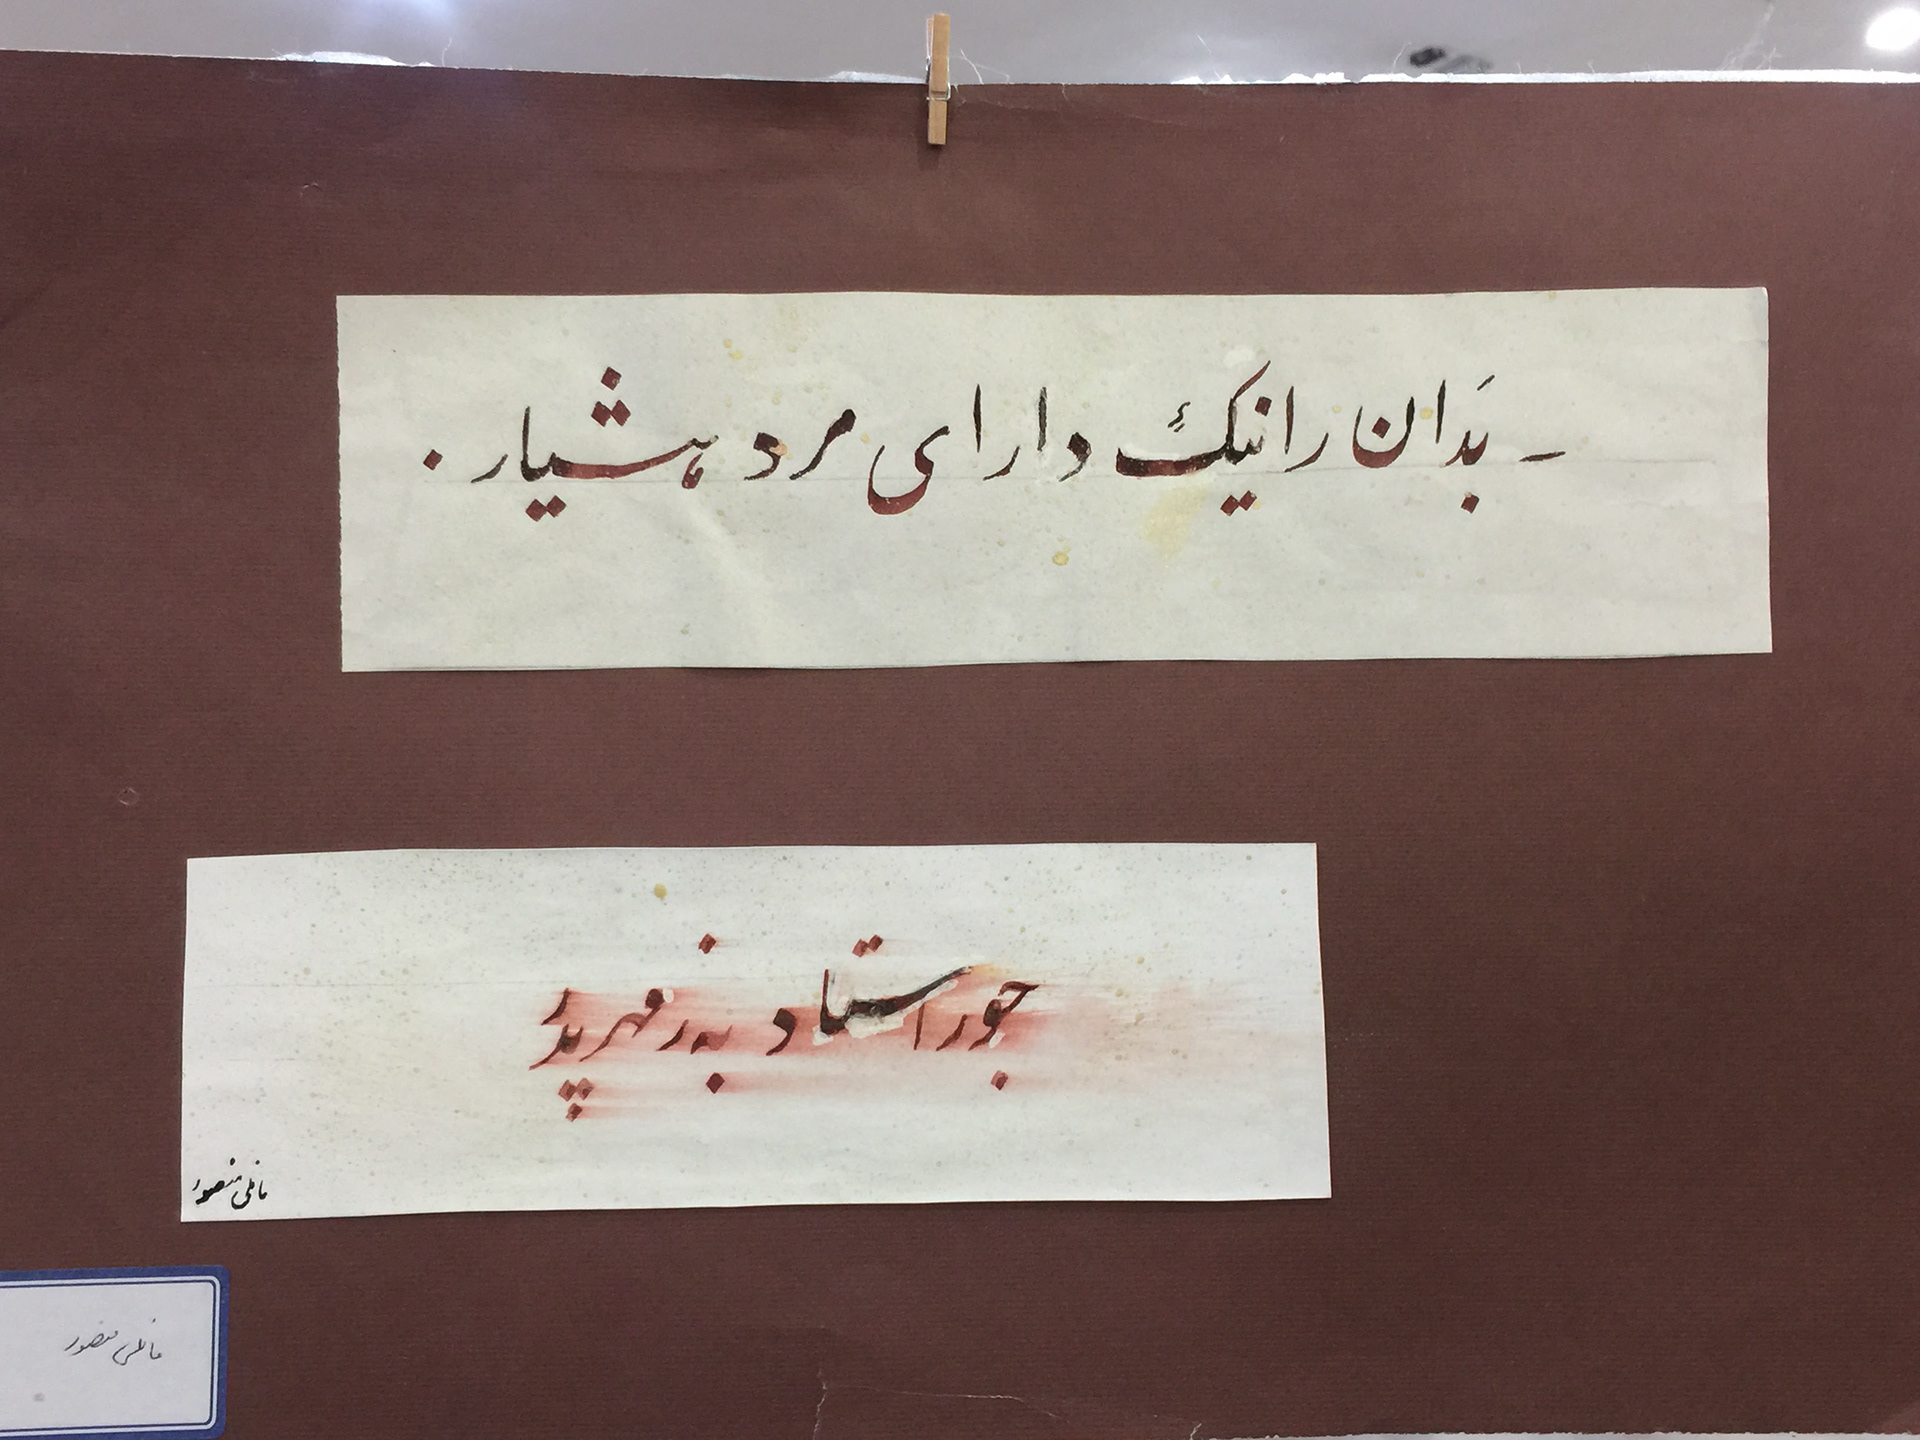 - بَدان را نیکٔ دار ای مرد هشیار .
جور استاد به ز مهر پدر
منصور
منصور